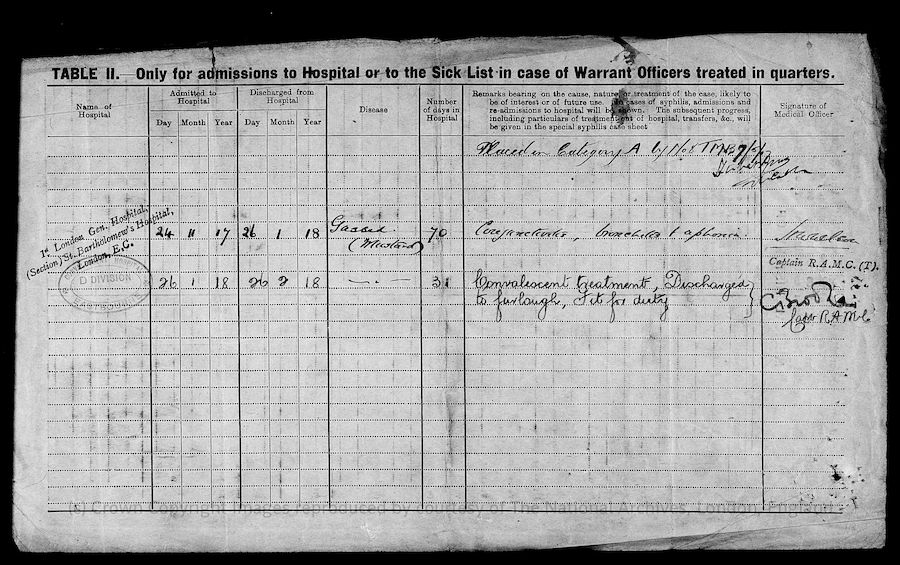 TABLE II. — Only for admissions to Hospital or to the Sick List in case of Warrant Officers treated in quarters.
Name of Hospital
Admitted to Hospital
Day Month Year
Discharged from Hospital
Day Month Year
Disease
Number of days in Hospital
Remarks bearing on the cause, nature, or treatment of the case, likely to
be of interest or of future use. In cases of syphilis, admissions and
re-admissions to hospital will be shown. The subsequent progress,
including particulars of treatment out of hospital, transfers, &c., will
be given in the special syphilis case sheet
Signature of Medical Officer
Placed in Category A by
1st London Gen. Hospital,
(Section) St. Bartholomew's Hospital,
London, E.C.
24 11 17 26 1 18 Gassed 70 Conjunctivitis, bronchitis & aphonia.
(Mustard)
Captain R.A.M.C. (T).
D DIVISION
EASTBOURNE
26 1 18 26 2 18 —"— 31 Convalescent treatment, Discharged
to furlough, Fit for duty
Capt R.A.M.C
(c) Crown Copyright Images reproduced by courtesy of The National Archives, London, England